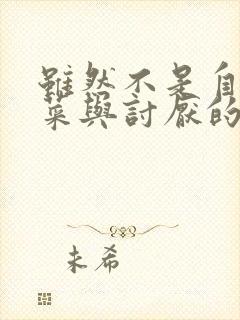 雖然不是自
菜與討厭的
未希